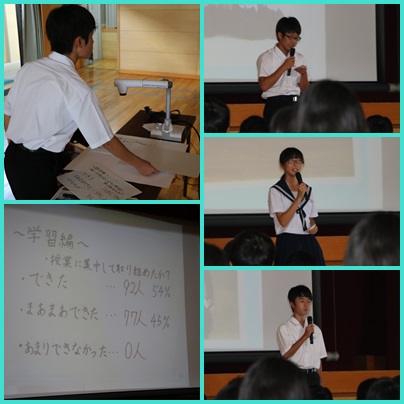 〜学習編〜
・授業に集中して取り組めたか?
・できた … 92人 54%
・まあまあできた … 77人 45%
・あまりできなかった… 0人